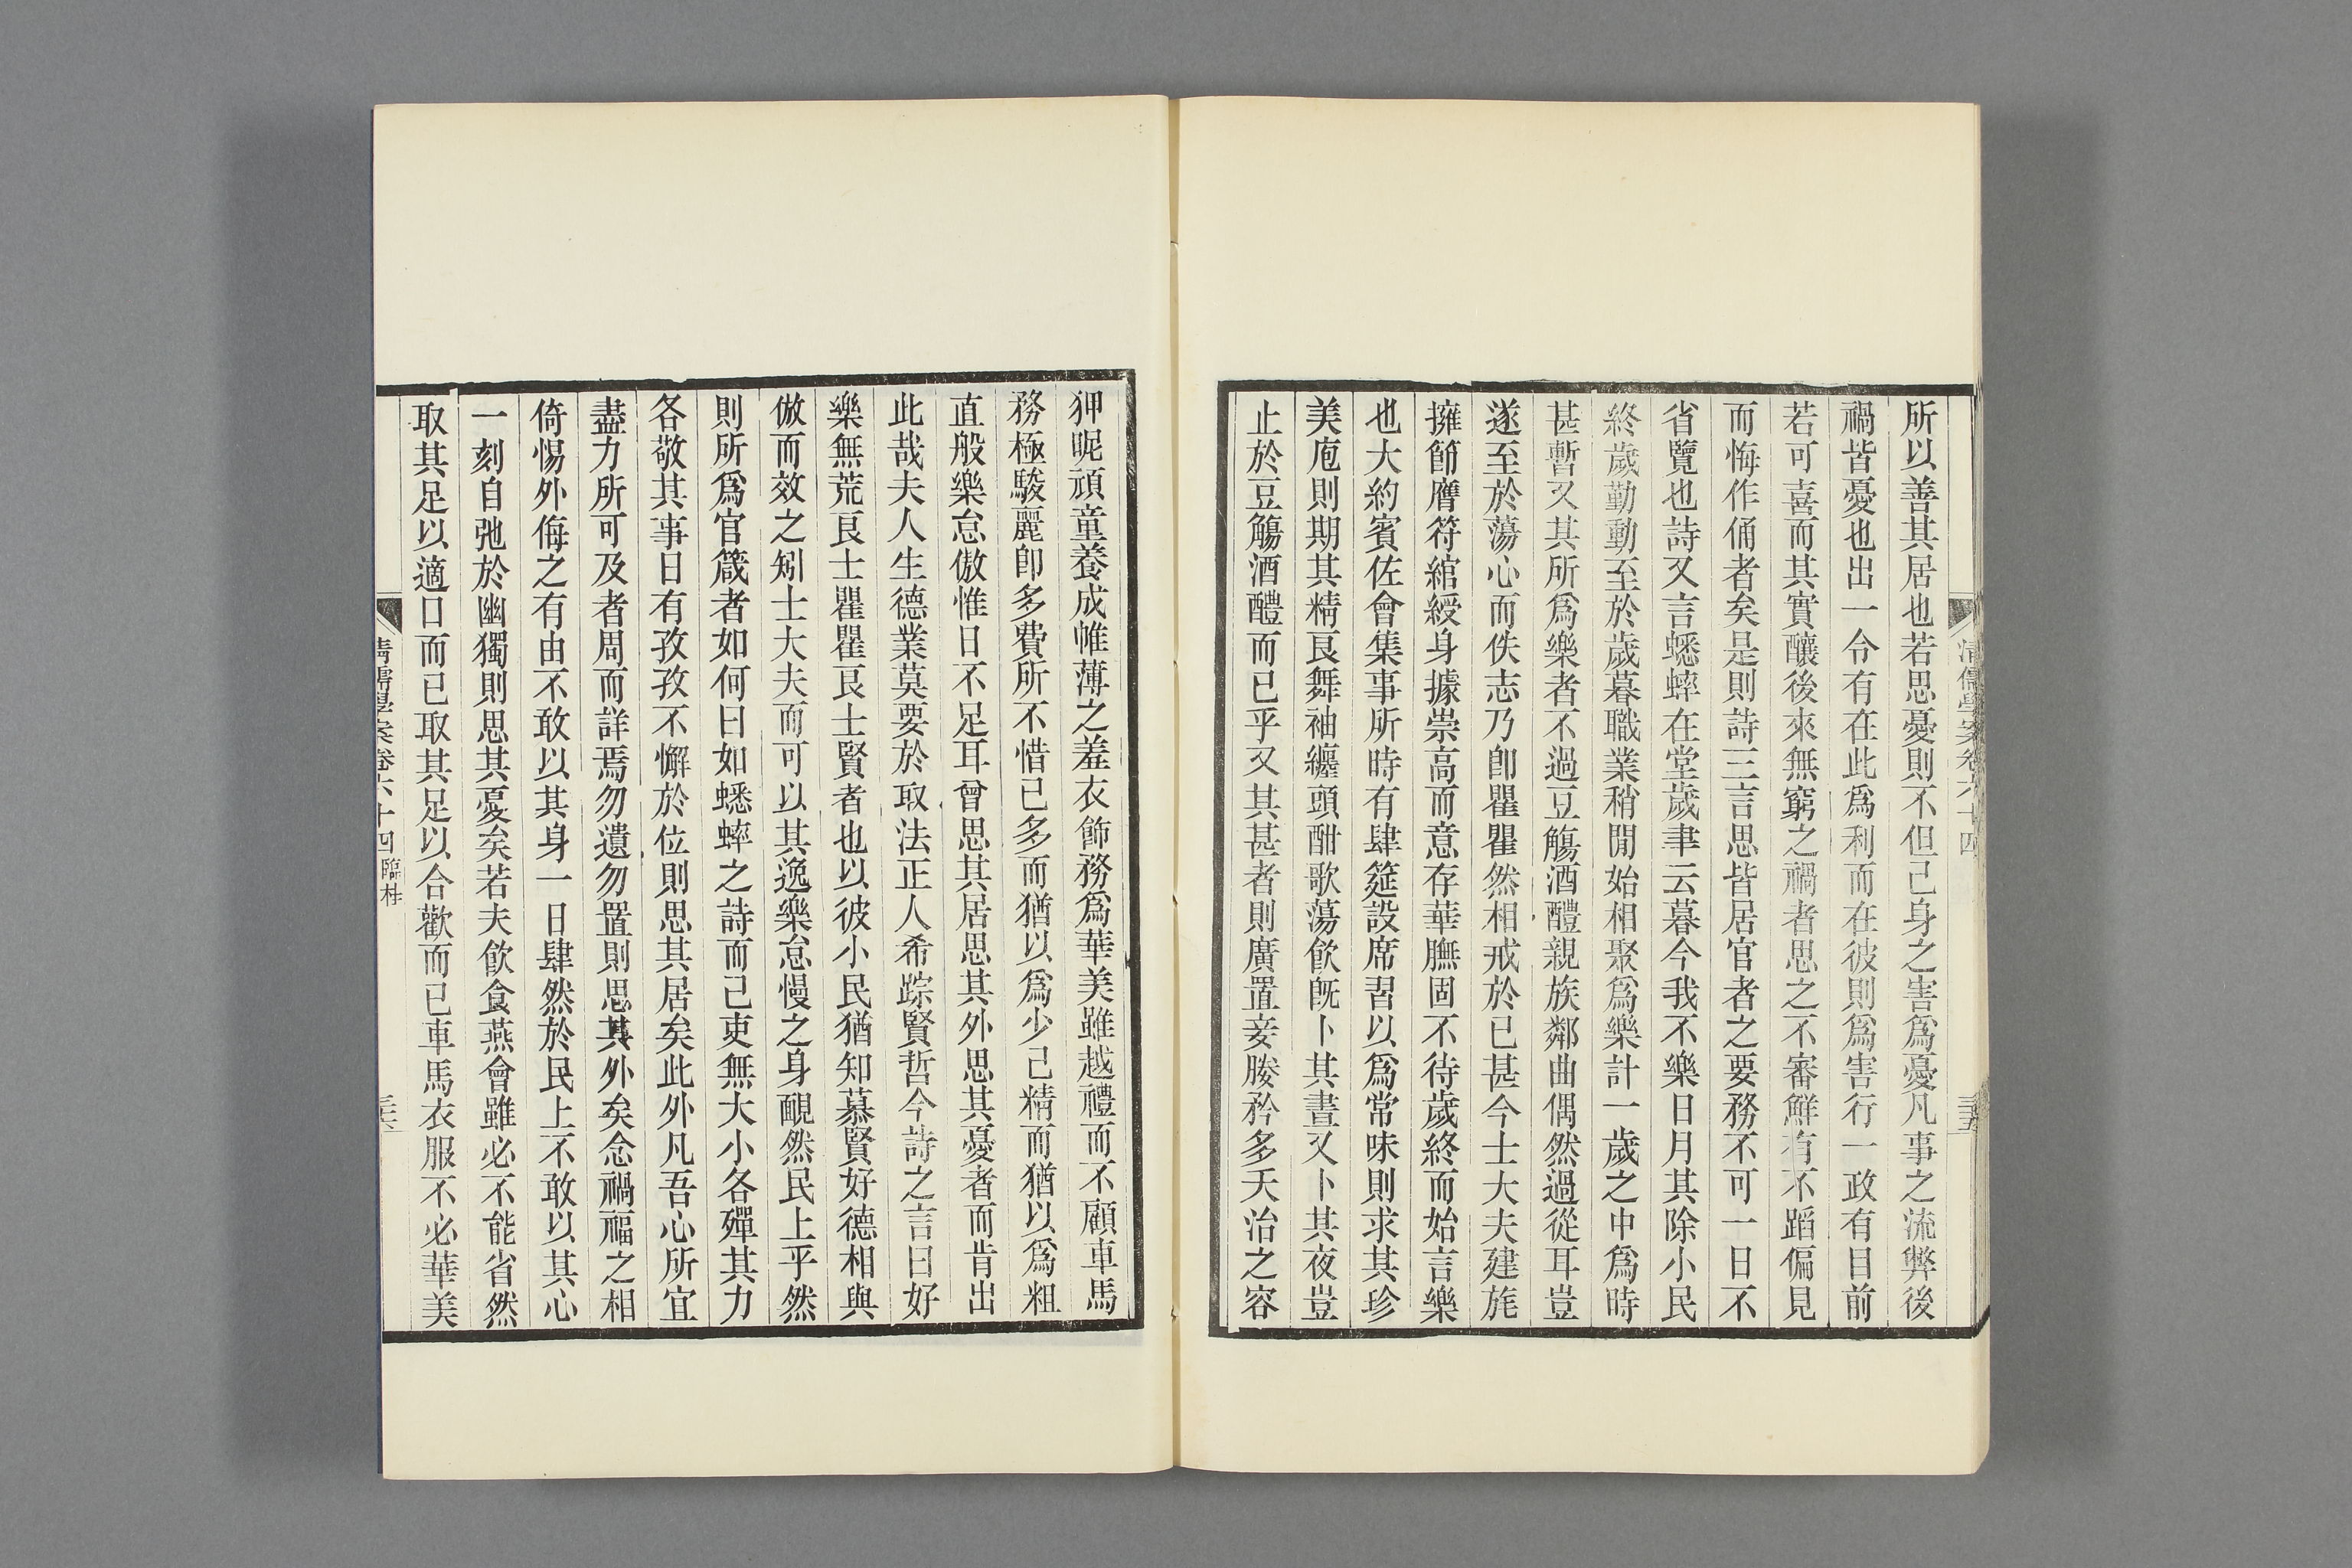 清儒學案卷六十四
三五
所以善其居也若思憂則不但己身之害爲憂凡事之流弊後
禍皆憂也出一令有在此爲利而在彼則爲害行一政有目前
若可喜而其實釀後來無窮之禍者思之不審鮮有不蹈偏見
而悔作俑者矣是則詩三言思皆居官者之要務不可一日不
省覽也詩又言蟋蟀在堂歲聿云暮今我不樂日月其除小民
終歲勤動至於歲暮職業稍閒始相聚爲樂計一歲之中爲時
甚暫又其所爲樂者不過豆觴酒醴親族鄰曲偶然過從耳豈
遂至於蕩心而佚志乃卽瞿瞿然相戒於已甚今士大夫建旄
擁節膺符綰綬身據崇高而意存華膴固不待歲終而始言樂
也大約賓佐會集事所時有肆筵設席習以爲常味則求其珍
美庖則期其精良舞袖纏頭酣歌蕩飲旣卜其晝又卜其夜豈
止於豆觴酒醴而已乎又其甚者則廣置妾媵矜多夭冶之容
狎昵頑童養成帷薄之羞衣飾務爲華美雖越禮而不顧車馬
務極駿麗卽多費所不惜已多而猶以爲少已精而猶以爲粗
直般樂怠傲惟日不足耳曾思其居思其外思其憂者而肯出
此哉夫人生德業莫要於取法正人希踪賢哲今詩之言曰好
樂無荒良士瞿瞿良士賢者也以彼小民猶知慕賢好德相與
倣而效之矧士大夫而可以其逸樂怠慢之身靦然民上乎然
則所爲官箴者如何曰如蟋蟀之詩而已吏無大小各殫其力
各敬其事日有孜孜不懈於位則思其居矣此外凡吾心所宜
盡力所可及者周而詳焉勿遺勿置則思其外矣念禍福之相
倚惕外侮之有由不敢以其身一日肆然於民上不敢以其心
一刻自弛於幽獨則思其憂矣若夫飲食燕會雖必不能省然
取其足以適口而已取其足以合歡而已車馬衣服不必華美
清儒學案卷六十四 臨桂
三六